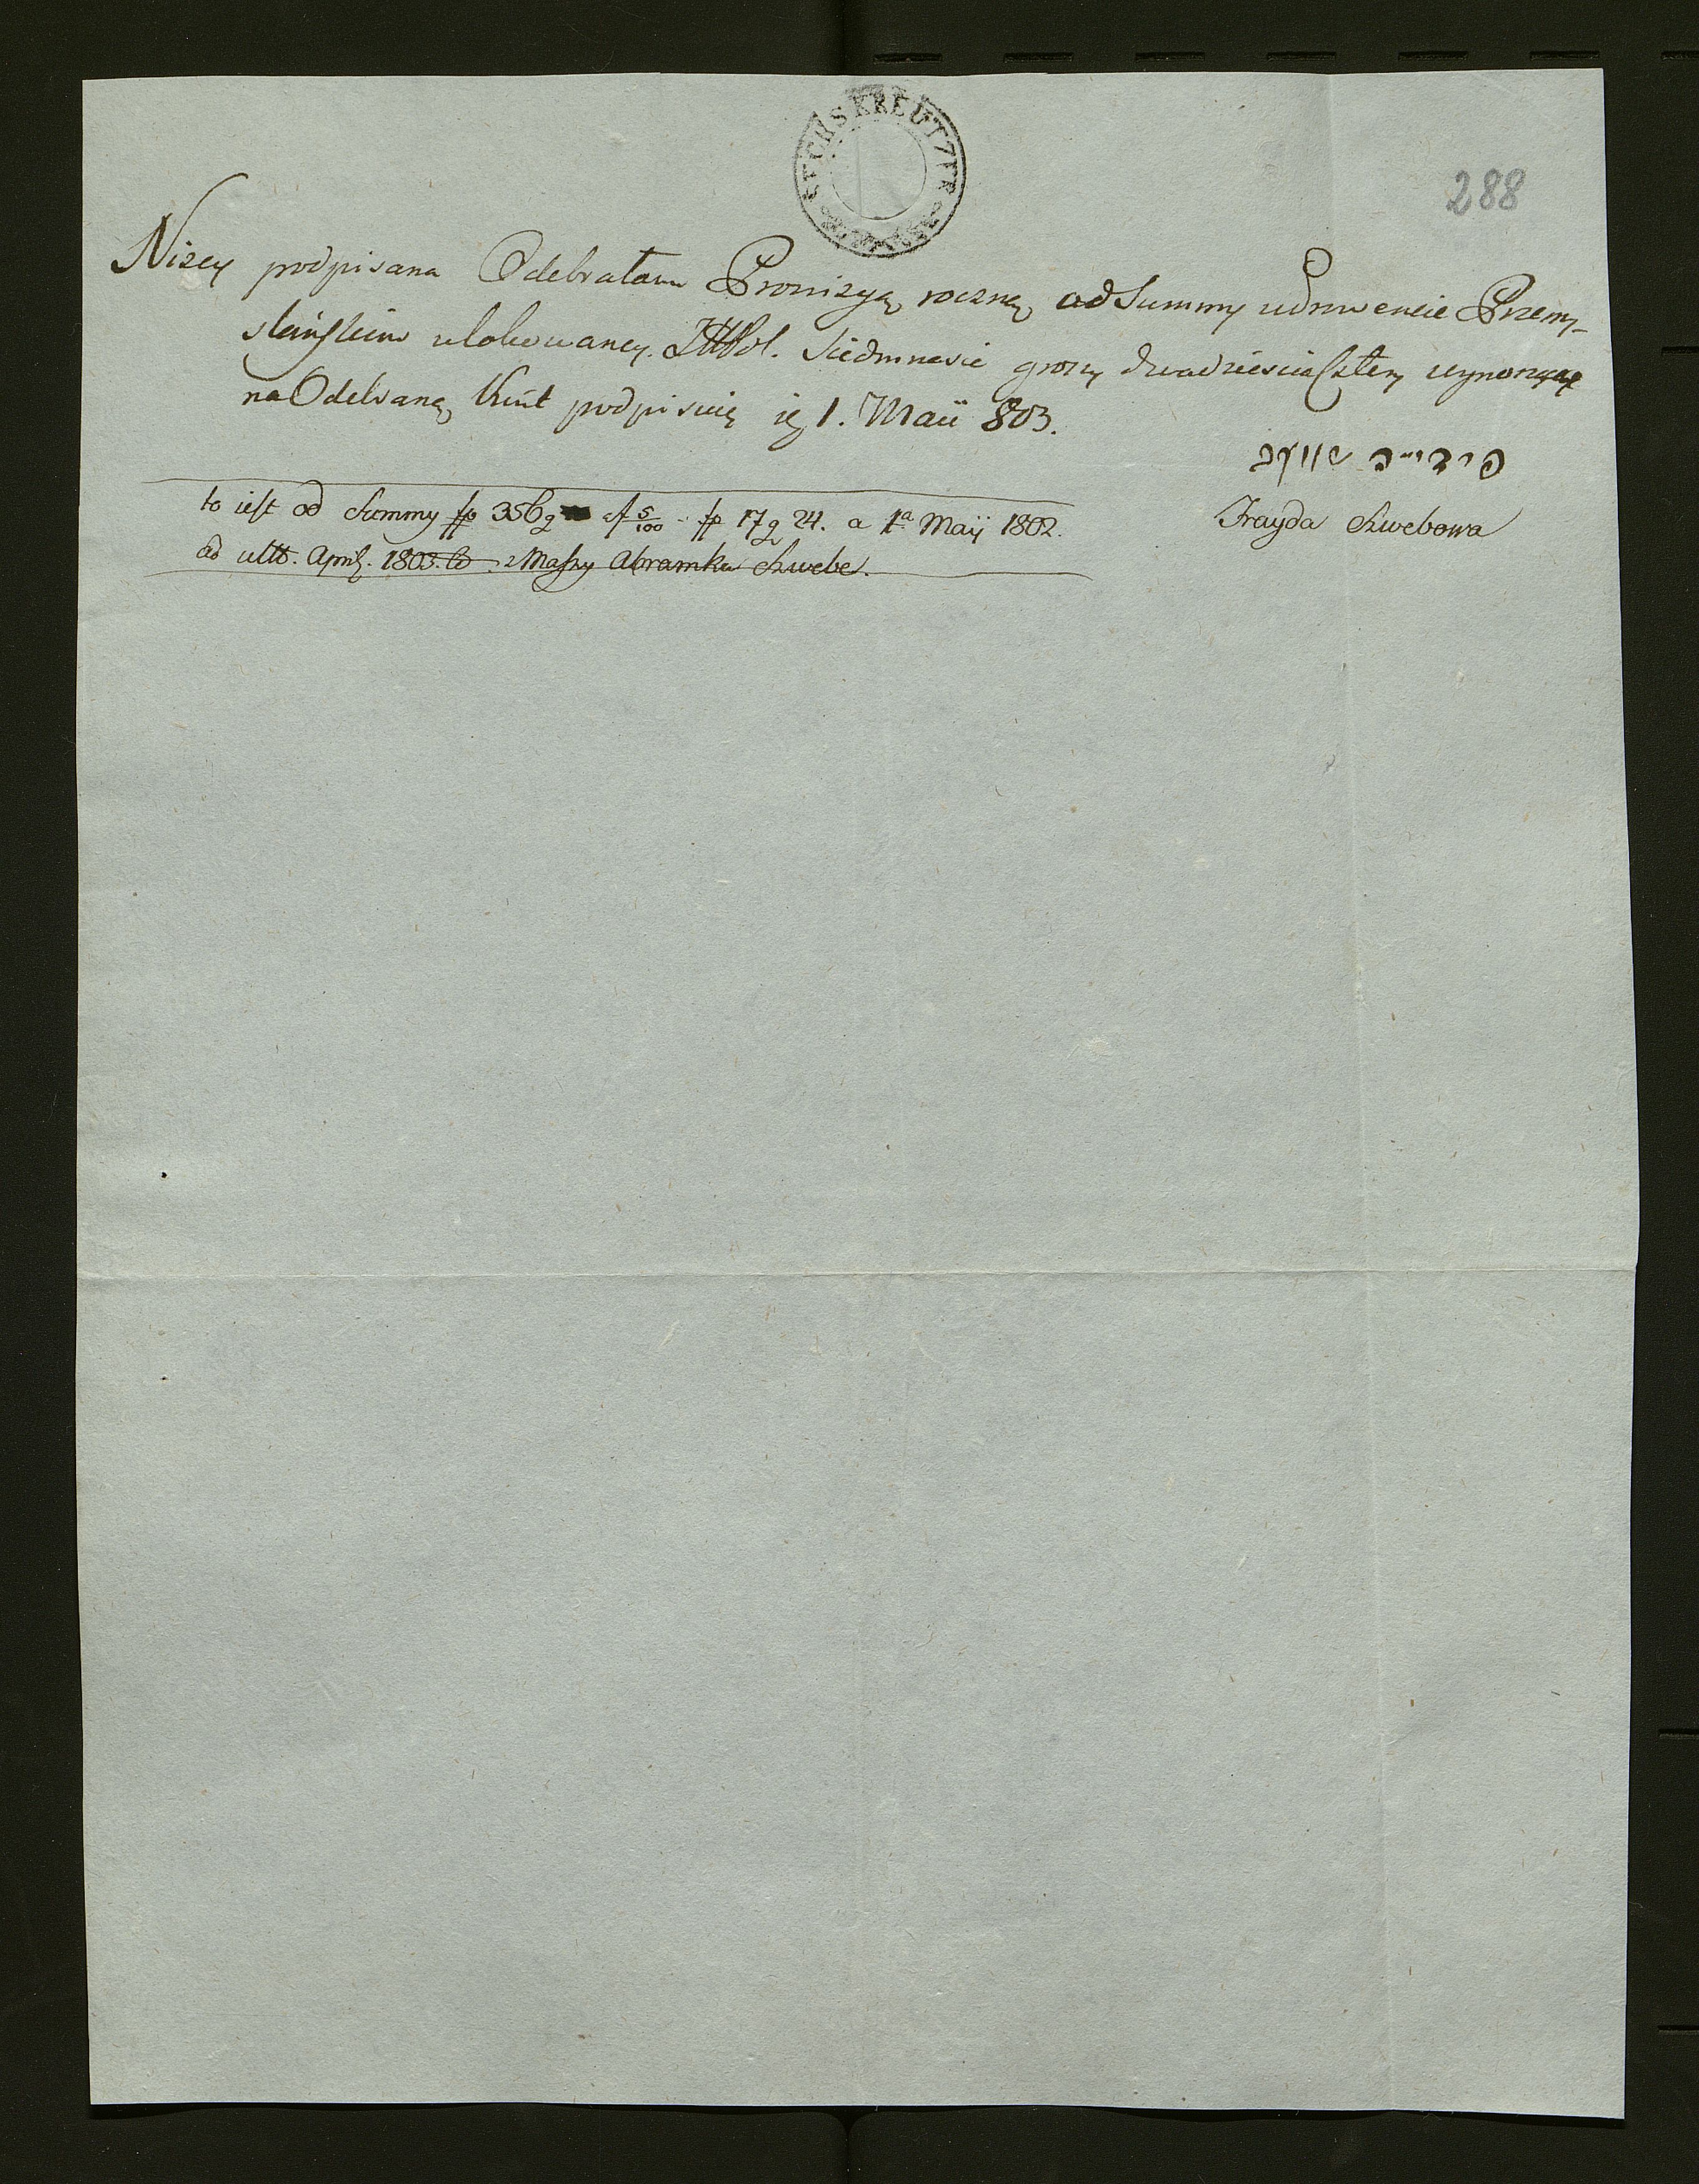 SECHS KREUTZER
288
Nizey podpisana Odebrałam Prowizyą roczną od Summy w Drwencie Przemy-
slańskim ulokowaney. Siedmnascie groszy dwadziescia Cztery wynoszącą
na Odebraną Kwit podpisuię ię 1. Maii 803.
פריידי שוועב
Frayda Szwebowa
to iest od Summy fp 356 g a 5/100 fp 17 g 24. a 1a Maij 1802.
ad ult. April. 1803. Massy Abramka Szwebe.